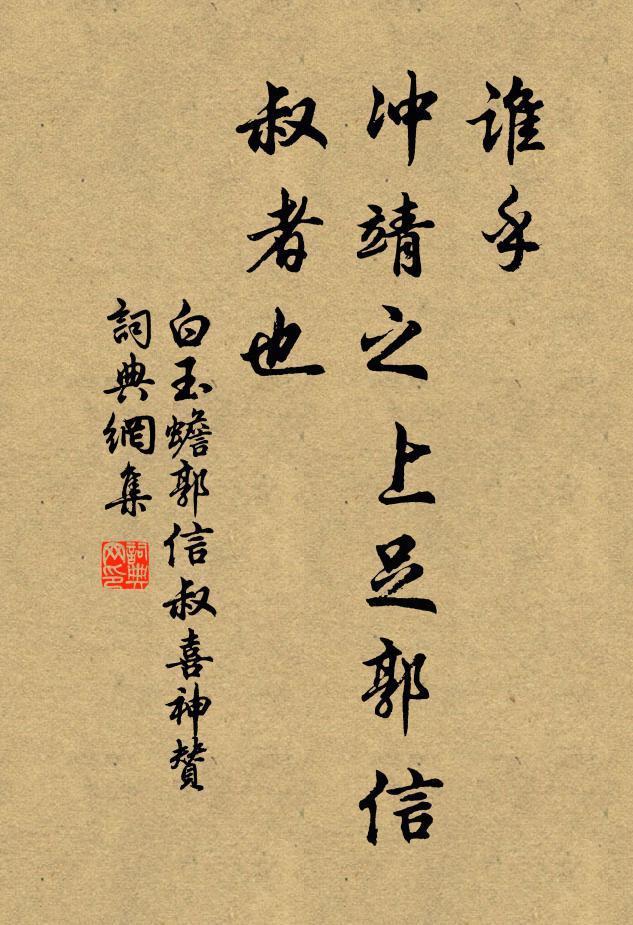 誰乎
冲靖之上足郭信
叔者也
白玉蟾郭信叔喜神贊
詞典網集
詞典网印